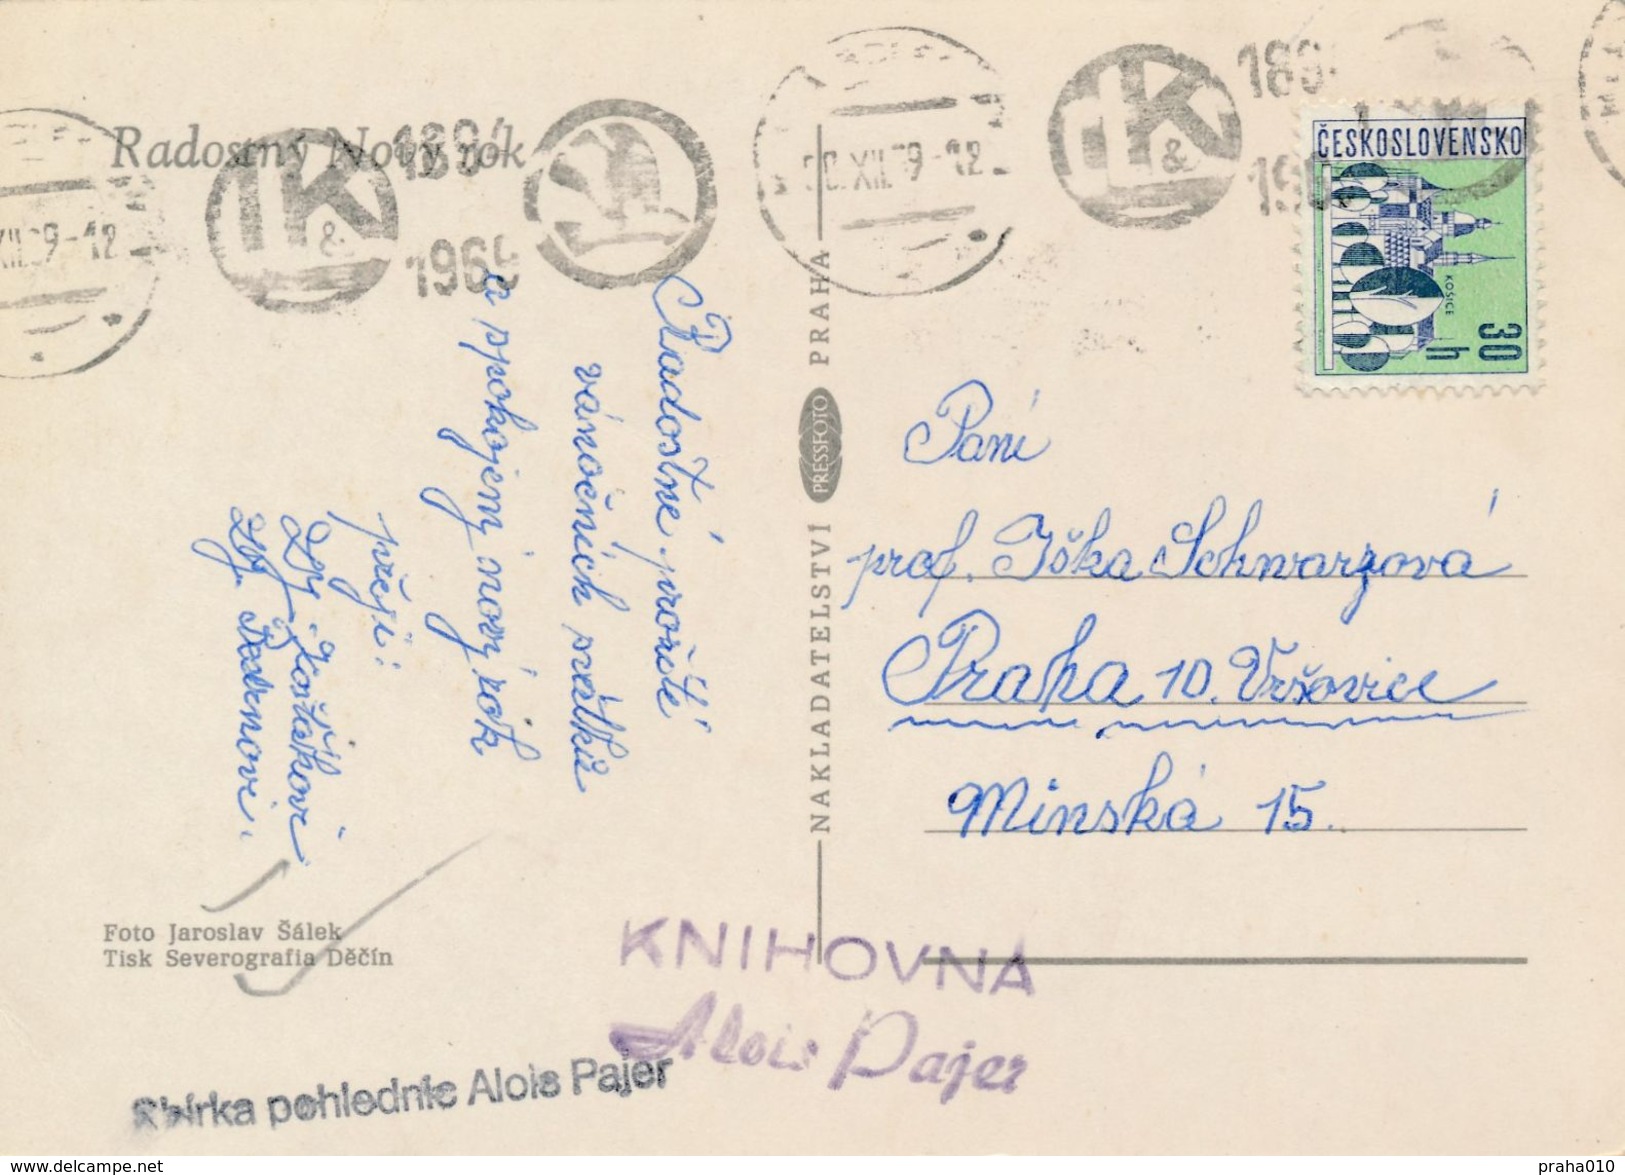 Radostný Nový rok
1894
1969
XII.69-12
XII.69-12
ČESKOSLOVENSKO
KOŠICE
30
h
Radostné prožití
vánočních svátků
a spokojený nový rok
přejí:
Koštákovi
NAKLADATELSTVÍ PRESSFOTO PRAHA
Paní
prof. Iška Schwarzová
Praha 10. Vršovice
Minská 15.
Foto Jaroslav Šálek
Tisk Severografia Děčín
KNIHOVNA
Alois Pajer
Sbírka pohlednic Alois Pajer
www.delcampe.net
praha010